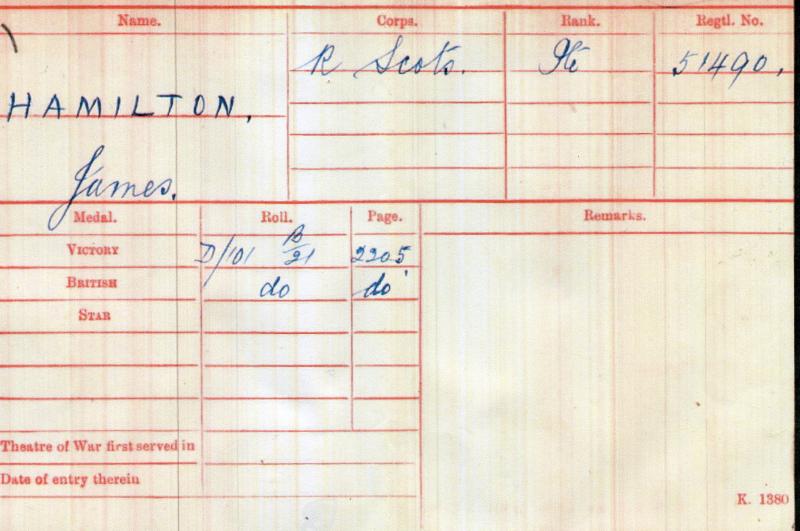 Name. Corps. Rank. Regtl. No.
R Scots. Pte 51490.
HAMILTON,
James.
Medal. Roll. Page. Remarks.
VICTORY D/101 B/21 2205
BRITISH do do
STAR
Theatre of War first served in
Date of entry therein
K. 1380